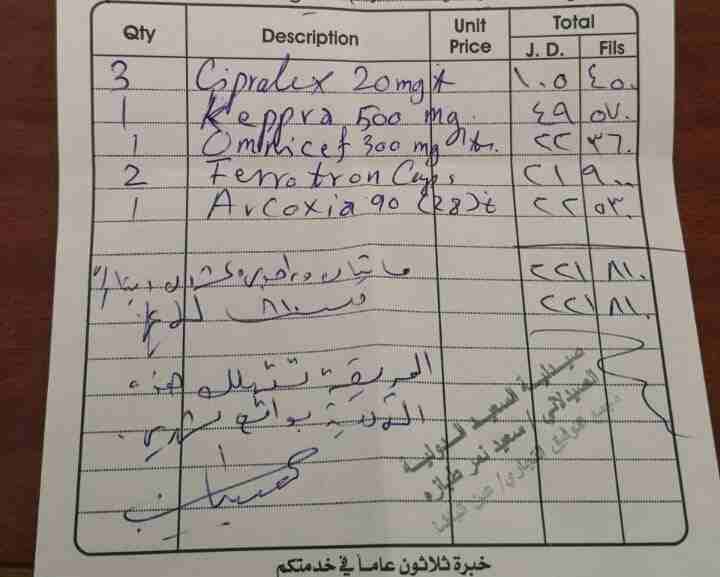 Qty Description Unit Price Total
J. D. Fils
3 Cipralex 20mg t ١٠٥ ٤٥٠
1 Keppra 500 mg ٤٩ ٥٧٠
1 Omnicef 300 mg ٢٢ ٣٦٠
2 Ferrotron Caps ٢١ ٩٠٠
1 Arcoxia 90 (28) t ٢٢ ٥٣٠
مائتان وواحد وعشرون دينار ٢٢١ ٨١٠
٨١٠ فلس لا غير ٢٢١ ٨١٠
المريضة تستهلك هذه
الأدوية بواقع شهري
صيدلية السعيد الدولية
الصيدلاني / سعيد نمر
خبرة ثلاثون عاماً في خدمتكم